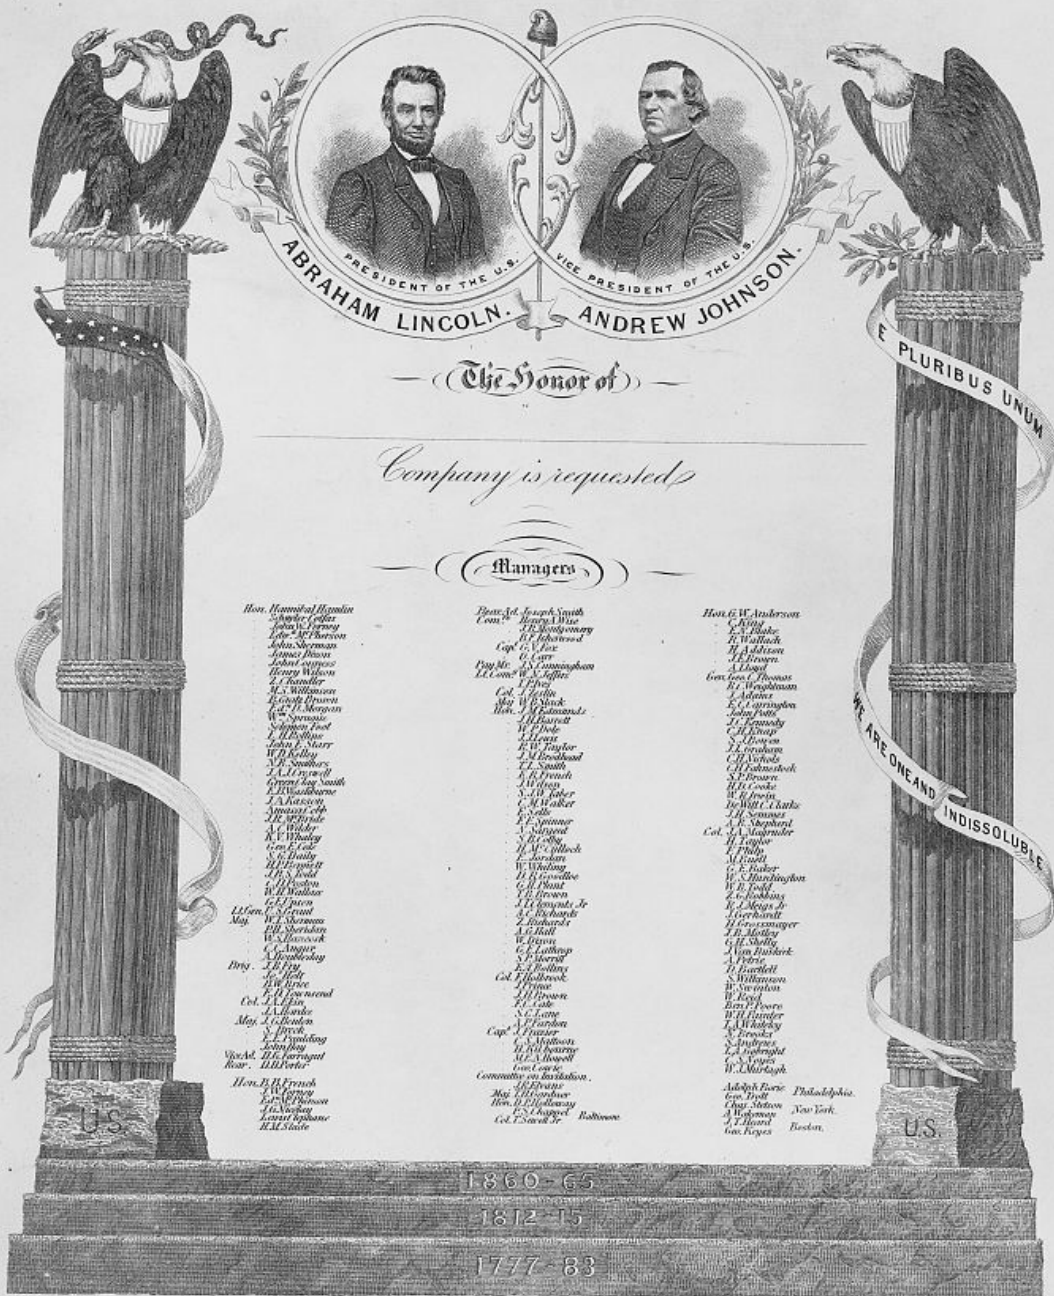 PRESIDENT OF THE U.S.
ABRAHAM LINCOLN.
VICE PRESIDENT OF THE U.S.
ANDREW JOHNSON.
E PLURIBUS UNUM
The Honor of
Company is requested
Managers
Hon. Hannibal Hamlin
Schuyler Colfax
John W. Forney
Edwd. McPherson
John Sherman
James Dixon
John Conness
Henry Wilson
Z. Chandler
M.S. Wilkinson
B. Gratz Brown
Ed. D. Morgan
Wm. Sprague
Solomon Foot
E.H. Rollins
John F. Starr
W.D. Kelley
N.B. Smithers
J.A.J. Creswell
Green Clay Smith
E.B. Washburne
J.A. Kasson
Amasa Cobb
J.R. McBride
A.C. Wilder
K.V. Whaley
Geo. E. Cole
S.G. Daily
H.P. Bennett
J.B.S. Todd
C.D. Poston
W.H. Wallace
Lt. Gen. U.S. Grant
Maj. W.T. Sherman
P.H. Sheridan
W.S. Hancock
C.C. Augur
A. Doubleday
Brig. J.B. Fry
Jo. Holt
B.W. Brice
E.D. Townsend
Col. J.A. Ekin
J.A. Hardie
Maj. J.G. Benton
S. Breck
E.E. Paulding
John Hay
Vice Ad. D.G. Farragut
Rear. D.D. Porter
Hon. B.B. French
J.W. Forney
Edwd. McPherson
J.G. Nicolay
H.M. Slade
Rear Ad. Joseph Smith
Com. Henry A. Wise
J.B. Montgomery
B.F. Isherwood
Capt. G.V. Fox
O. Carr
Pay Mr. J.S. Cunningham
Lt. Comr. W.N. Jeffers
T.P. Ives
Col. J. Zeilin
Maj. W.B. Slack
Hon. J.M. Edmunds
J.H. Bassett
W.P. Dole
J.H. Lewis
B.W. Taylor
J.M. Brodhead
T.L. Smith
E.B. French
J. Wilson
S.J.W. Taber
C.M. Walker
E. Sells
F.E. Spinner
N. Sargent
S.B. Colby
H. McCulloch
E. Jordan
W. Whiting
D.R. Goodloe
G.H. Plant
T.B. Brown
J.T. Clements Jr
A.C. Richards
Z. Richards
A.G. Hall
W. Dixon
G.F. Lathrop
S.P. Morrill
E.A. Rollins
Col. F. Holbrook
J. Prince
J.H. Brown
F.C. Cate
S.G. Lane
A.P. Fardon
Capt. J. Frazier
C.S. Mattoon
H. Kilbourne
M.E.N. Howell
Geo. Cowie
Committee on Invitation.
J.R. Elvans
Maj. J.H. Gardner
Hon. D.P. Holloway
P.S. Chappel Baltimore.
Col. T. Sewell Jr.
Hon. G.W. Anderson
C. King
E.N. Blake
R. Wallach
H. Addison
J.E. Brown
A. Lloyd
Gen. Geo. C. Thomas
R.C. Weightman
J. Adams
E.C. Carrington
John Potts
J.C. Kennedy
C.H. Knap
S.J. Bowen
J.L. Graham
C.H. Nichols
G.H. Fahnestock
S.P. Brown
H.D. Cooke
W.B. Irwin
De Witt C. Clarke
J.H. Semmes
A.R. Shepherd
Col. J.A. Magruder
H. Taylor
F. Philp
M. Buell
G.E. Baker
W.S. Huntington
W.B. Todd
Z.C. Robbins
R.J. Meigs Jr
J. Gerhardt
B. Grossmayer
J.B. Motley
G.H. Shelly
J. Van Buskirk
A. Petrie
D. Bartlett
S. Wilkinson
W. Swinton
W. Reid
Ben. P. Poore
W.B. Painter
L.A. Whiteley
N. Brooks
S. Andrews
L.A. Gobright
C.S. Noyes
W.J. Murtagh
Adolph Borie Philadelphia.
Geo. Trott
Chas. Stetson New York.
A. Wakeman
J.T. Heard Boston.
Geo. Keyes
WE ARE ONE AND INDISSOLUBLE
U.S.
U.S.
1860-65
1812-15
1777-83